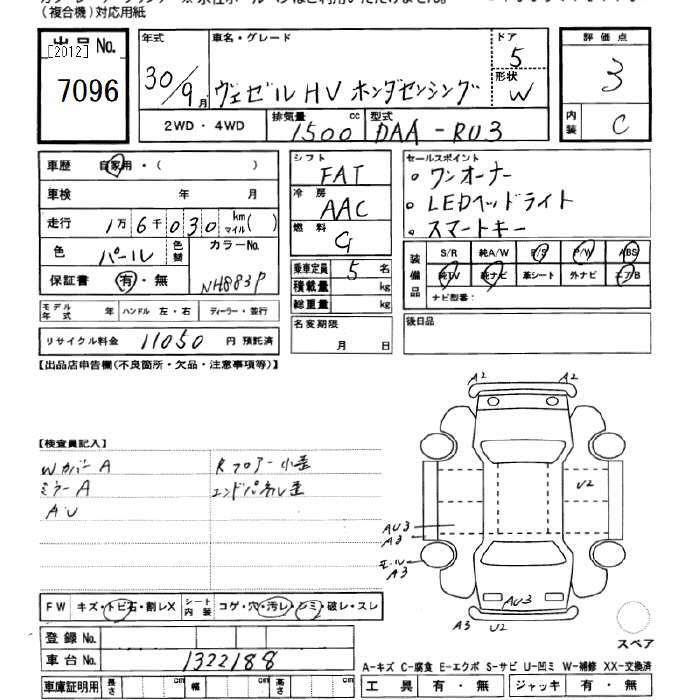 (複合機)対応用紙
出品No. [2012] 7096
年式 30/9月
車名・グレード ヴェゼル HV ホンダセンシング
ドア 5
形状 W
評価点 3
内装 C
2WD・4WD
排気量 1500 cc
型式 DAA-RU3
車歴 自家用・( )
車検 年 月
走行 1万6千030 km マイル( )
色 パール 色替
カラーNo. NH883P
保証書 有・無
モデル年式 年 ハンドル 左・右 ディーラー・並行
リサイクル料金 11050 円 預託済
シフト FAT
冷房 AAC
燃料 G
乗車定員 5 名
積載量 kg
総重量 kg
名変期限 月 日
セールスポイント
。ワンオーナー
。LEDヘッドライト
。スマートキー
装備品
S/R 純A/W P/S P/W ABS
純TV 純ナビ 革シート 外ナビ エア/B
ナビ型番:
後日品
【出品店申告欄(不良箇所・欠品・注意事項等)】
【検査員記入】
Wカバー A Rフロアー小歪
ミラー A エンドパネル歪
AU
A2 A2
U2
AU3
A3
A3
AU3
A3 U2
スペア
FW キズ・トビ石・割レX シート内装 コゲ・穴・汚レ・シミ・破レ・スレ
登録No.
車台No. 1322188
車庫証明用 長さ cm 幅 cm 高さ cm
A-キズ C-腐食 E-エクボ S-サビ U-凹ミ W-補修 XX-交換済
工具 有・無 ジャッキ 有・無